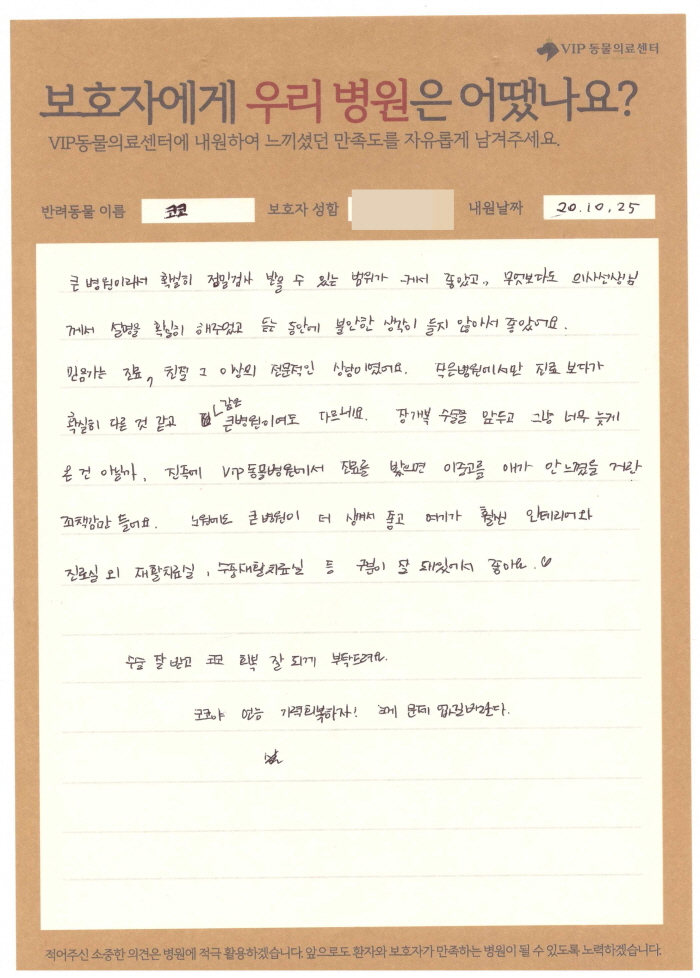 VIP 동물의료센터
보호자에게 우리 병원은 어땠나요?
VIP동물의료센터에 내원하여 느끼셨던 만족도를 자유롭게 남겨주세요.
반려동물 이름 코코 보호자 성함 내원날짜 20.10.25
큰 병원이라서 확실히 정밀검사 받을 수 있는 범위가 커서 좋았고, 무엇보다도 의사선생님
께서 설명을 확실히 해주셨고 듣는 동안에 불안한 생각이 들지 않아서 좋았어요.
믿음가는 진료, 친절 그 이상의 전문적인 상담이였어요. 작은병원에서만 진료 보다가
확실히 다른 것 같고 같은 큰병원이여도 다르네요. 장개복 수술을 앞두고 그냥 너무 늦게
온 건 아닐까, 진즉에 VIP동물병원에서 진료를 봤으면 이중고를 애가 안느꼈을 거란
죄책감만 들어요. 노원에도 큰 병원이 더 생겨서 좋고 여기가 훨씬 인테리어와
진료실 외 재활치료실, 수중재활치료실 등 구분이 잘 돼있어서 좋아요.♡
수술 잘 받고 코코 회복 잘 되게 부탁드려요.
코코야 얼능 기력회복하자!
적어주신 소중한 의견은 병원에 적극 활용하겠습니다. 앞으로도 환자와 보호자가 만족하는 병원이 될 수 있도록 노력하겠습니다.